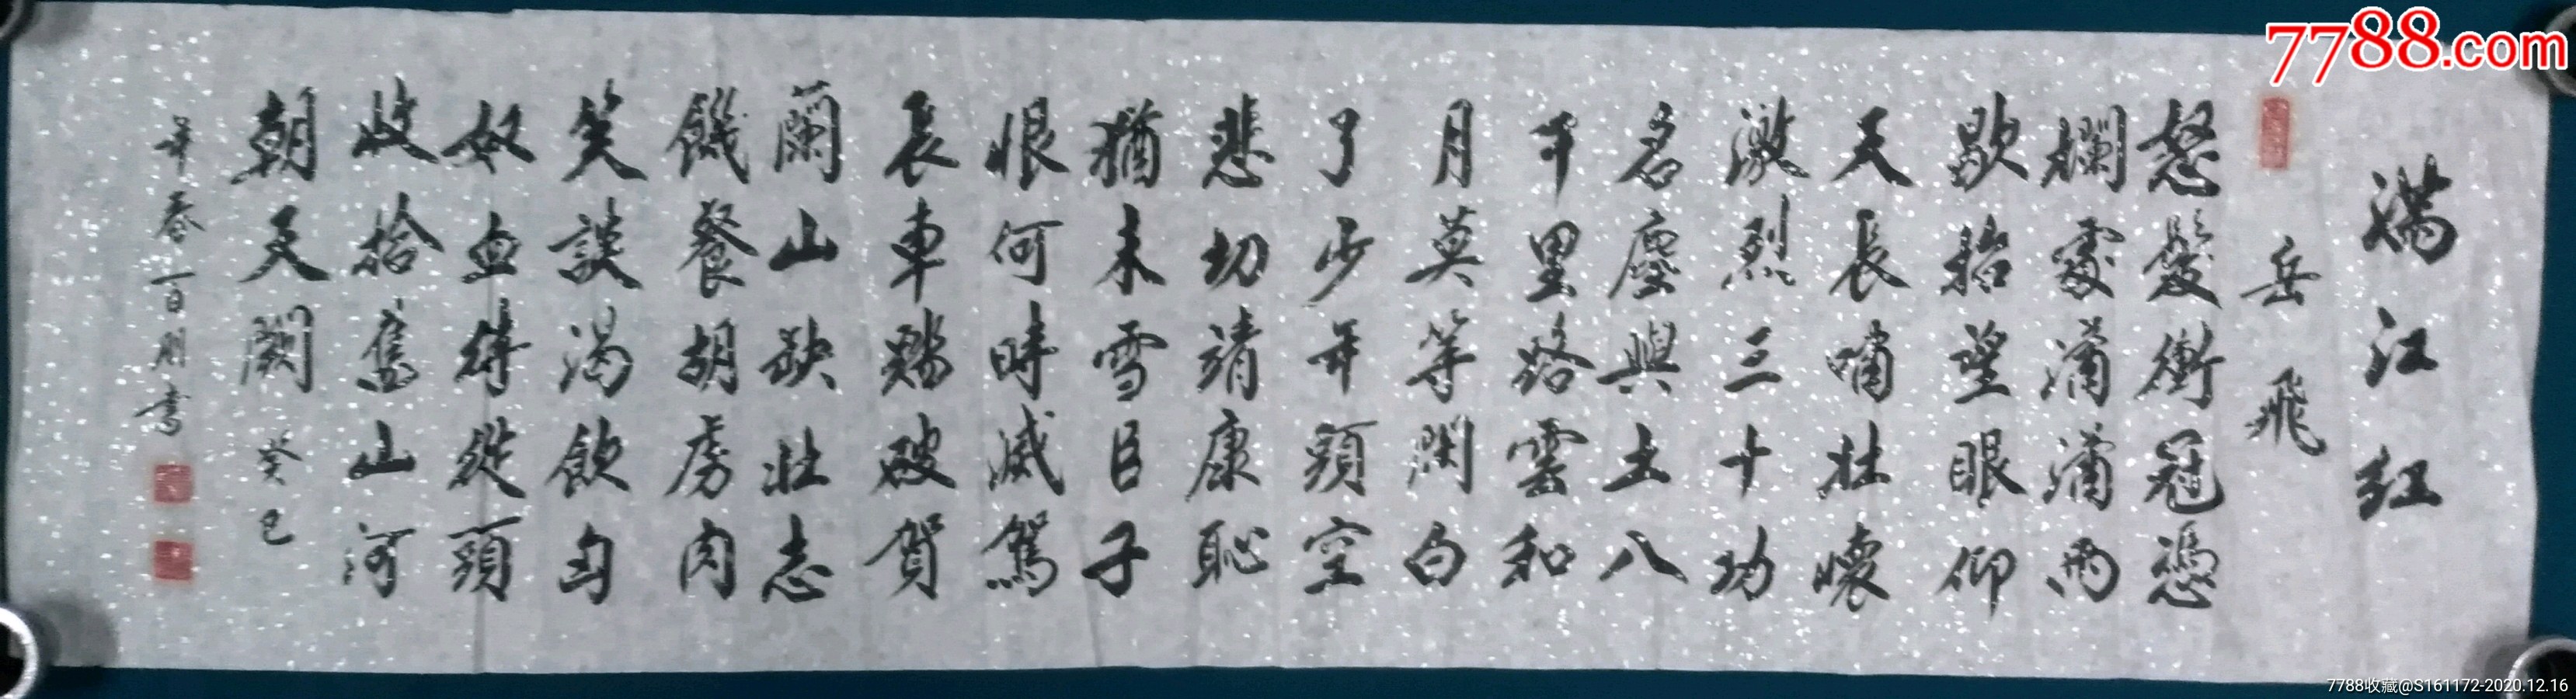 滿江紅
岳飛
怒髮衝冠憑
欄處瀟瀟雨
歇抬望眼仰
天長嘯壯懷
激烈三十功
名塵與土八
千里路雲和
月莫等閑白
了少年頭空
悲切靖康恥
猶未雪臣子
恨何時滅駕
長車踏破賀
蘭山缺壯志
饑餐胡虜肉
笑談渴飲匈
奴血待從頭
收拾舊山河
朝天闕 癸巳
年春百朋書
7788.com
7788收藏@S161172-2020.12.16